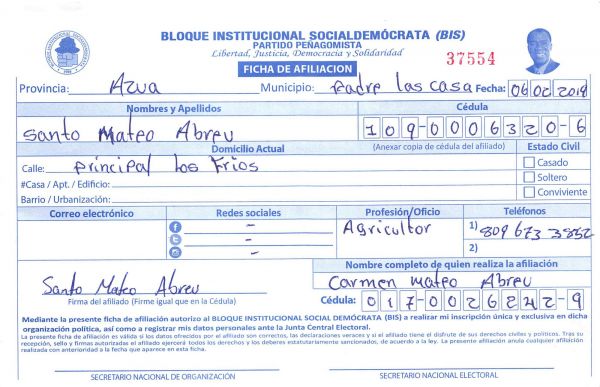 BLOQUE INSTITUCIONAL SOCIALDEMÓCRATA (BIS)
PARTIDO PEÑAGOMISTA
Libertad, Justicia, Democracia y Solidaridad
37554
FICHA DE AFILIACION
Provincia: Azua Municipio: Padre las casa Fecha: 06 02 2019
Nombres y Apellidos Cédula
Santo Mateo Abreu 109-0006320-6
Domicilio Actual (Anexar copia de cédula del afiliado) Estado Civil
Calle: Principal los Frios Casado
#Casa / Apt. / Edificio: Soltero
Barrio / Urbanización: Conviviente
Correo electrónico Redes sociales Profesión/Oficio Teléfonos
- Agricultor 1) 809 673 3852
- 2)
-
Nombre completo de quien realiza la afiliación
Santo Mateo Abreu Carmen mateo Abreu
Firma del afiliado (Firme igual que en la Cédula) Cédula: 017-0026242-9
Mediante la presente ficha de afiliación autorizo al BLOQUE INSTITUCIONAL SOCIAL DEMÓCRATA (BIS) a realizar mi inscripción única y exclusiva en dicha
organización política, así como a registrar mis datos personales ante la Junta Central Electoral.
La presente ficha de afiliación es válida si los datos ofrecidos por el afiliado son correctos, las declaraciones veraces y si el afiliado tiene el disfrute de sus derechos civiles y políticos. Tras su
recepción, sello y firmas autorizadas el afiliado ejercerá todos los derechos y los deberes estatutariamente sancionados, de acuerdo a la ley. La presente afiliación anula cualquier afiliación
realizada con anterioridad a la fecha que aparece en esta ficha.
SECRETARIO NACIONAL DE ORGANIZACIÓN SECRETARIO NACIONAL ELECTORAL